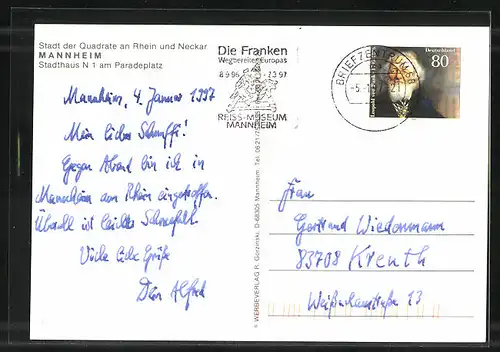 Stadt der Quadrate an Rhein und Neckar
MANNHEIM
Stadthaus N 1 am Paradeplatz
Mannheim, 4. Januar 1997
Mein liebes
Gegen Abend bin ich in
Mannheim am Rhein eingetroffen.
Überall ist leichter Schneefall.
Viele liebe Grüße
Dein Alfred
Die Franken
Wegbereiter Europas
8.9.96
REISS-MUSEUM
MANNHEIM
BRIEFZENTRUM 68
Deutschland
80
WERBEVERLAG R. Gorzinski, D-68305 Mannheim
Frau
Gertrud Wiedenmann
83708 Kreuth
13